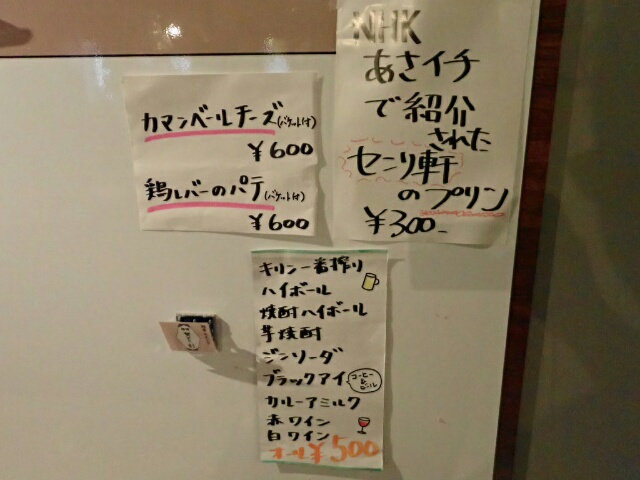 カマンベールチーズ(バケット付)
¥600
鶏レバーのパテ(バケット付)
¥600
NHK
あさイチ
で紹介
された
センリ軒
のプリン
¥300-
キリン一番搾り
ハイボール
焼酎ハイボール
芋焼酎
ジンソーダ
ブラックアイ
コーヒー
&
ビール
カルーアミルク
赤ワイン
白ワイン
オール¥500